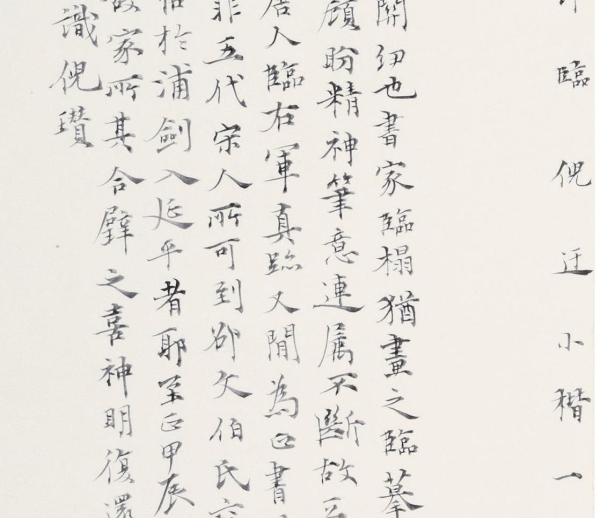 臨倪迂小楷一
關紐也書家臨榻猶畫之臨摹
顧盼精神筆意連属不斷故
居人臨右軍真跡文閒為口書
罪五代宋人所可到郤文伯氏
於浦劍入延平者耶至正甲辰
故家所其合璧之喜神明復還
識倪瓚